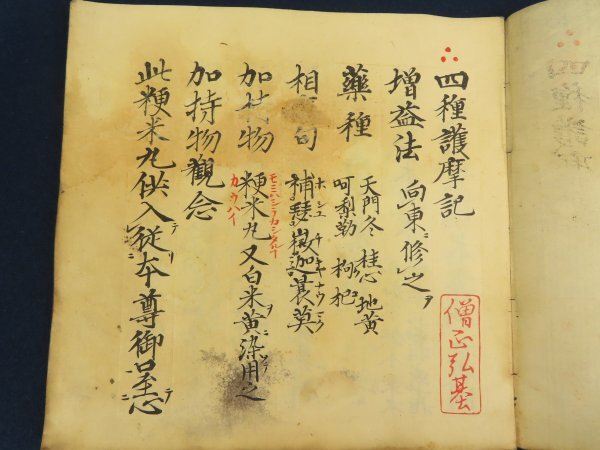 四種護摩記
増益法 向東ニ修之ヲ
薬種 天門冬 桂心 地黄
呵梨勒 枸杞
相 句 補瑟 迦 莫
加持物 粳米丸又白米黄ニ染用之
加持物観念
此粳米丸供入テ従リ本尊御口至心
僧正弘基